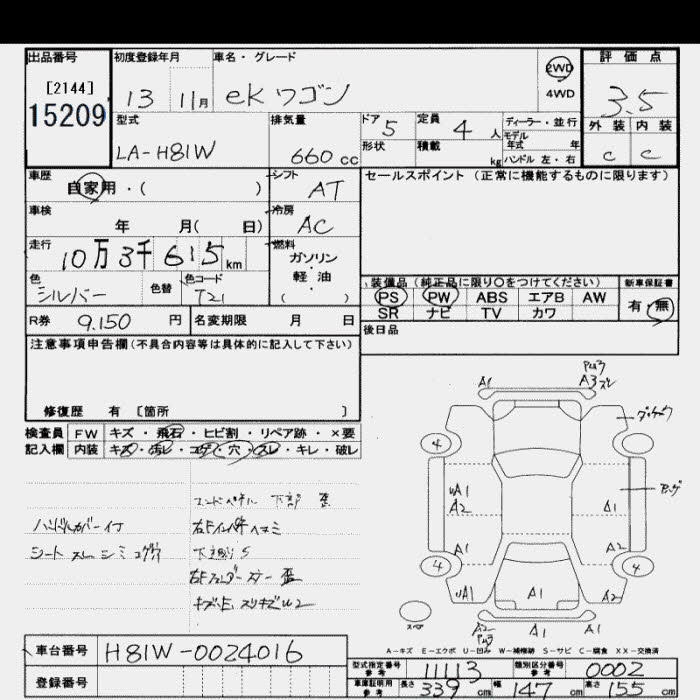 出品番号 初度登録年月 車名・グレード 評価点
[2144] 2WD
15209 13 11月 ekワゴン 4WD 3.5
型式 排気量 ドア 5 定員 4人 ディーラー・並行 外装 内装
モデル年式 年
LA-H81W 660cc 形状 積載 kg ハンドル 左・右 C C
車歴 シフト セールスポイント(正常に機能するものに限ります)
自家用・( ) AT
車検 冷房
年 月( 日) AC
走行 燃料
10万3千615km ガソリン・軽油
色 色替 色コード ( )
シルバー T21
装備品(純正品に限り○をつけてください) 新車保証書
PS PW ABS エアB AW 有・無
SR ナビ TV カワ
R券 9.150円 名変期限 月 日 後日品
注意事項申告欄(不具合内容等は具体的に記入して下さい)
修復歴 有 〔箇所 〕
検査員 FW キズ・飛石・ヒビ割・リペア跡・×要
記入欄 内装 キズ・汚レ・コゲ・穴・スレ・キレ・破レ
A1 A3
4
uA1 A2 A1
A1 A2
4 4
uA1 A1 A2
A2 A1 A1
ハンドルカバー付
下廻りS
A-キズ E-エクボ U-凹み W-補修跡 S-サビ C-腐食 XX-交換済
車台番号 H81W-0024016
登録番号
型式指定番号 参考 11113 類別区分番号 参考 0002
車庫証明用 参考 長さ 339cm 幅 147cm 高さ 155cm